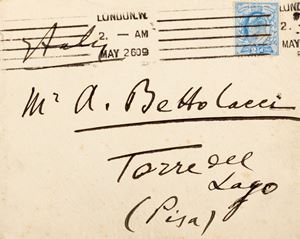 LONDON.W.
2. — AM
MAY 26 09
2. — AM
MAY
Italy
Mr A. Bettolacci
Torre del
Lago
(Pisa)